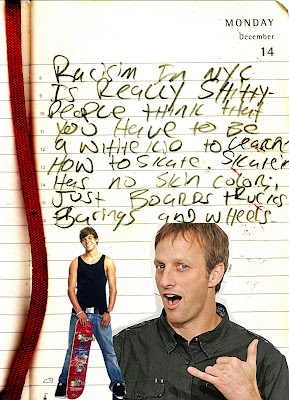 MONDAY
December
14
Racisim In NYC
Is Really Shitty
People think that
you Have to Be
a withe kid to learn
How to Skate. Skater
Has no Skin color;
Just Boards trucks
Barings and wheels